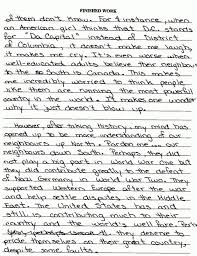 FINISHED WORK
of them don't know. For instance, when
American girl thinks that D.C. stands
for "Da Capital" instead of District
of Columbia, it doesn't make me laugh,
it makes me cry. It's even worse when
well-educated adults believe their neighbour
to the so South is Canada. This makes
me incredibly worried to think people
like them are running the most powerful
country in the world. It makes one wonder
why it just doesn't blow up.
However, after taking history, my mind has
opened up to be more understanding of our
neighbours up North - Pardon me ... our
neighbours down South. Perhaps they did
not play a big part in World War One but
they did contribute greatly to the defeat
of Nazi Germany in World War Two. They
supported Western Europe after the war
and help settle disputes in the Middle
East. The United States has and
still is contributing much to their
country and the world's welfare.
they deserve to
pride themselves on their great country,
despite some faults.